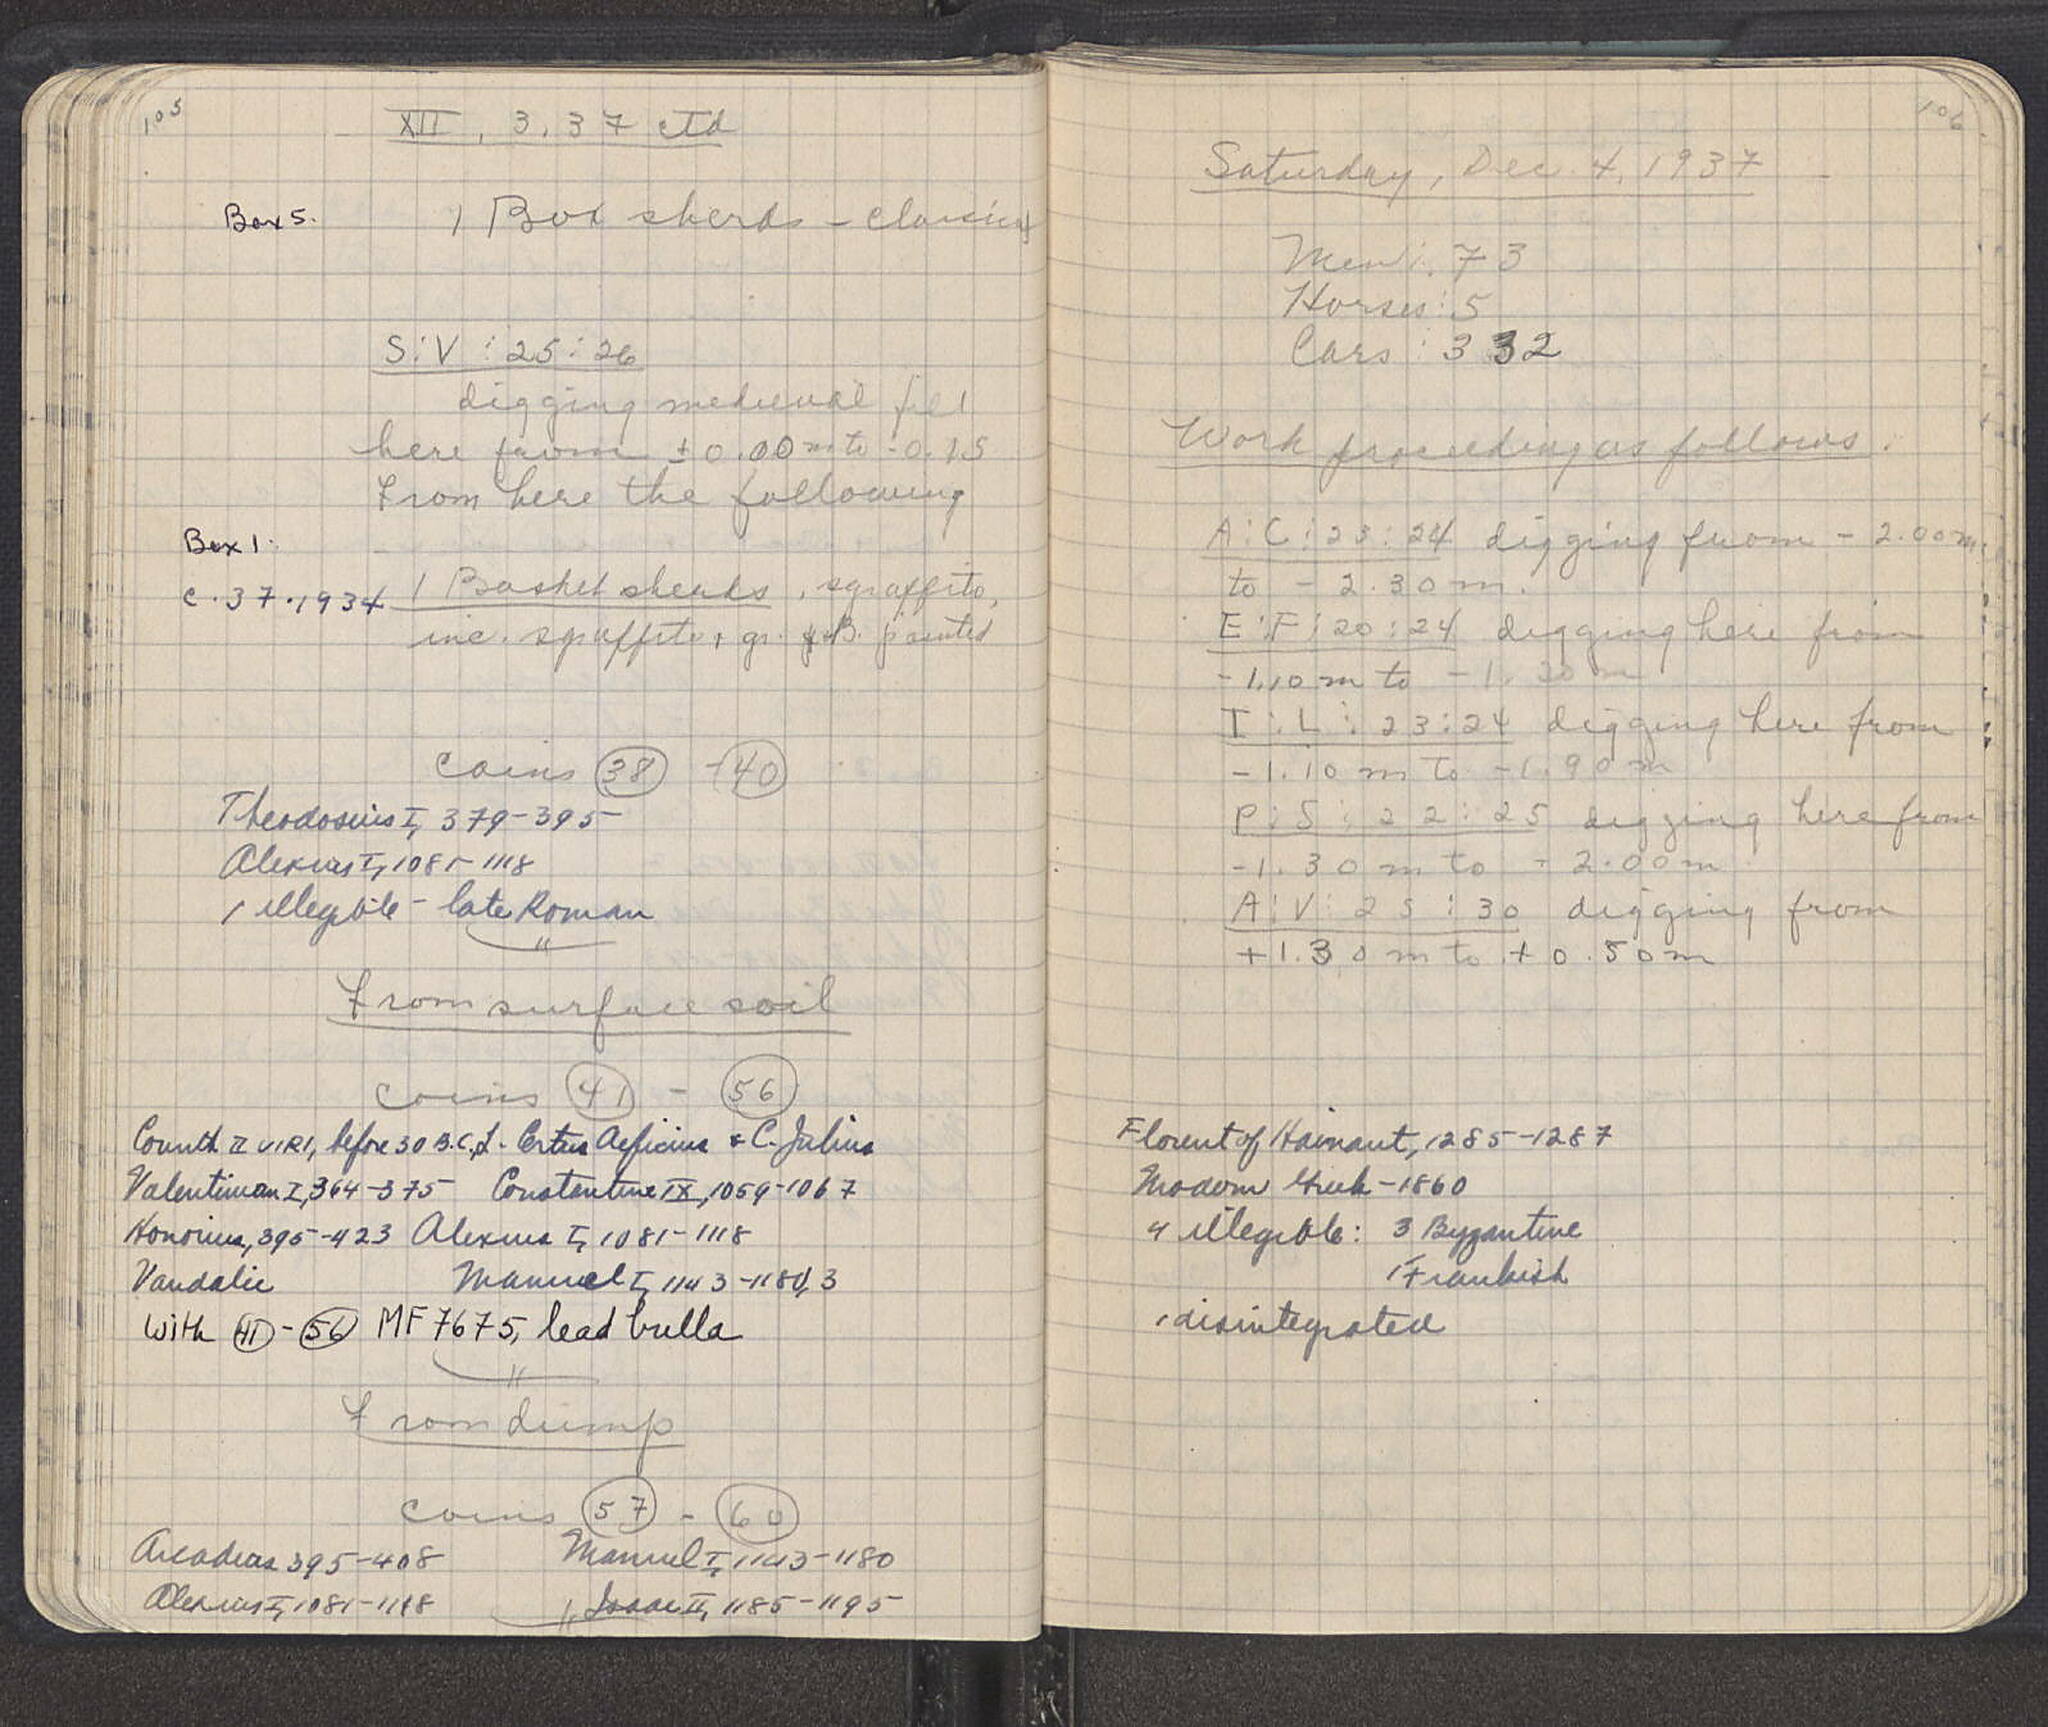 105
XII, 3, 37 ctd
Box 5. 1 Box sherds - classical
S:V:25:26
digging medieval fill
here from ± 0.00 m to -0.75
From here the following
Box 1.
C.37.1934 1 Basket sherds, sgraffito,
inc. sgraffito, gr. & B. painted
coins 38 - 40
Theodosius I, 379-395
Alexius I, 1081-1118
1 illegible - late Roman
"
From surface soil
coins 41 - 56
Corinth II VIRI, before 30 B.C., Aeficius & C. Julius
Valentinian I, 364-375 Constantine IX, 1059-1067
Honorius, 395-423 Alexius I, 1081-1118
Vandalic Manuel I, 1143-1180, 3
with 41 - 56 MF 7675, lead bulla
"
From dump
coins 57 - 60
Arcadius 395-408 Manuel I, 1143-1180
Alexius I, 1081-1118 Isaac II, 1185-1195
106
Saturday, Dec. 4, 1937
Men: 73
Horses: 5
Cars: 332
Work proceeding as follows:
A:C:23:24 digging from - 2.00 m
to - 2.30 m.
E:F:20:24 digging here from
-1.10 m to -1.30 m
I:L:23:24 digging here from
-1.10 m to -1.90 m
P:S:22:25 digging here from
-1.30 m to - 2.00 m
A:V:25:30 digging from
+1.30 m to + 0.50 m
Florent of Hainaut, 1285-1287
Modern Greek - 1860
4 illegible: 3 Byzantine
1 Frankish
1 disintegrated